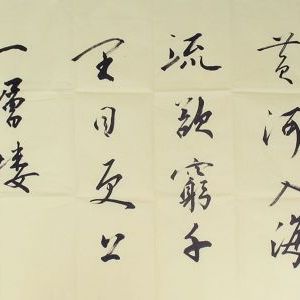 黄河入海
流欲窮千
里目更上
一層楼